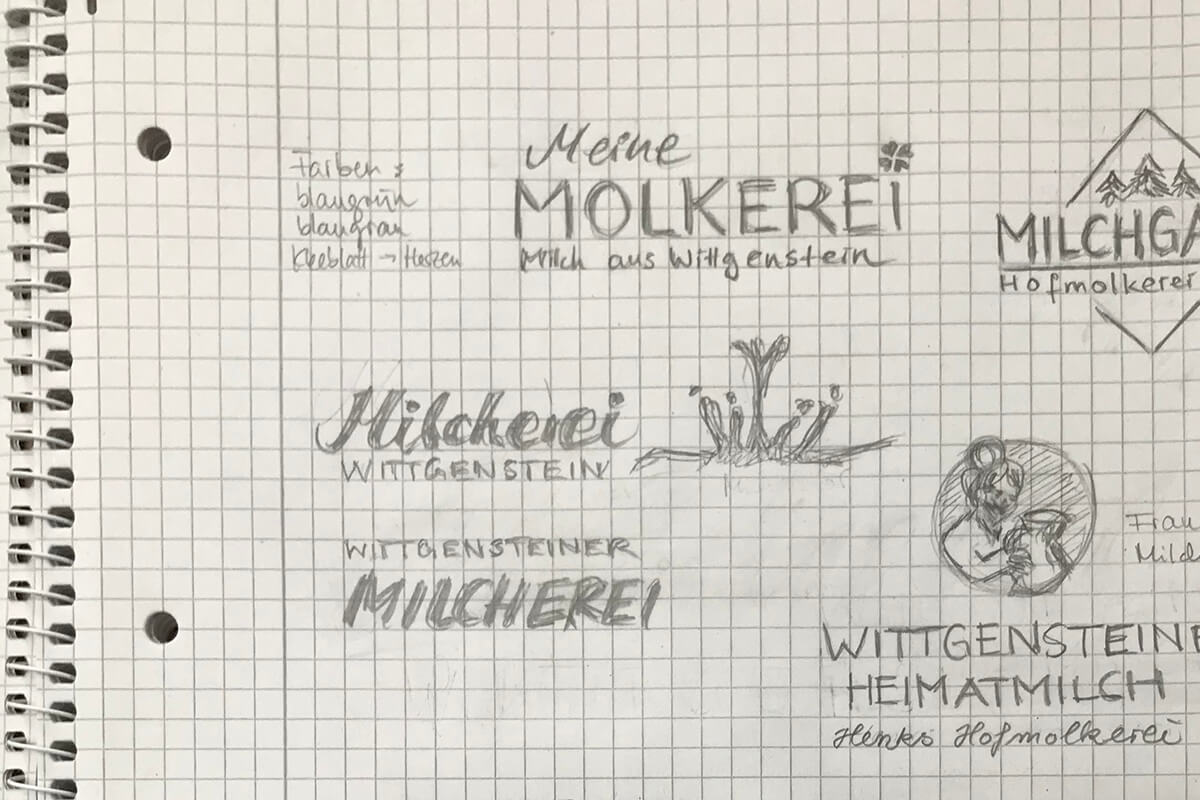 Farben:
blaugrün
blaugrau
Kleeblatt → Herzen
Meine
MOLKEREi
Milch aus Wittgenstein
MILCHGA
Hofmolkerei
Milcherei
WITTGENSTEIN
WITTGENSTEINER
MILCHEREI
Frau
Milch
WITTGENSTEINE
HEIMATMILCH
Henks Hofmolkerei